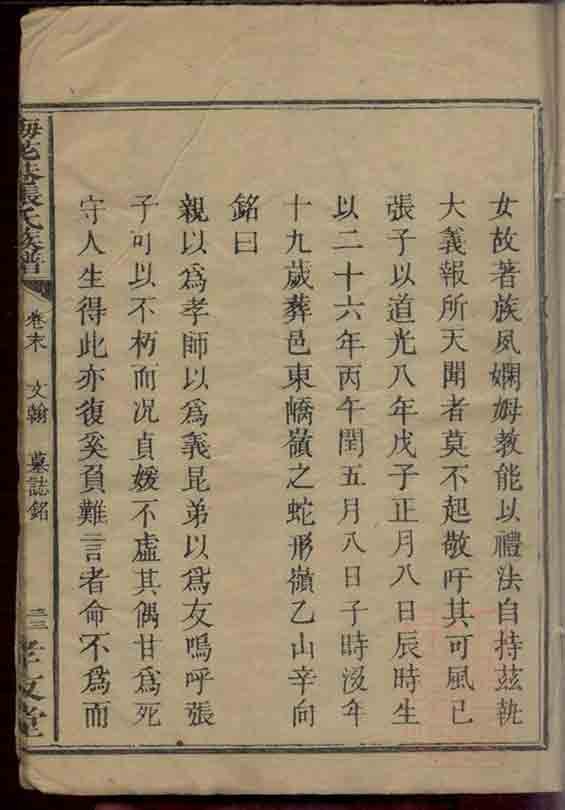 女故著族夙嫻姆教能以禮法自持茲執
大義報所天聞者莫不起敬吁其可風已
張子以道光八年戊子正月八日辰時生
以二十六年丙午閏五月八日子時沒年
十九歲葬邑東嶠嶺之蛇形嶺乙山辛向
銘曰
親以為孝師以為義昆弟以為友嗚呼張
子可以不朽而况貞媛不虛其偶甘為死
守人生得此亦復奚負難言者命不為而
張氏族譜
卷末 文翰 墓誌銘
二三
孝友堂